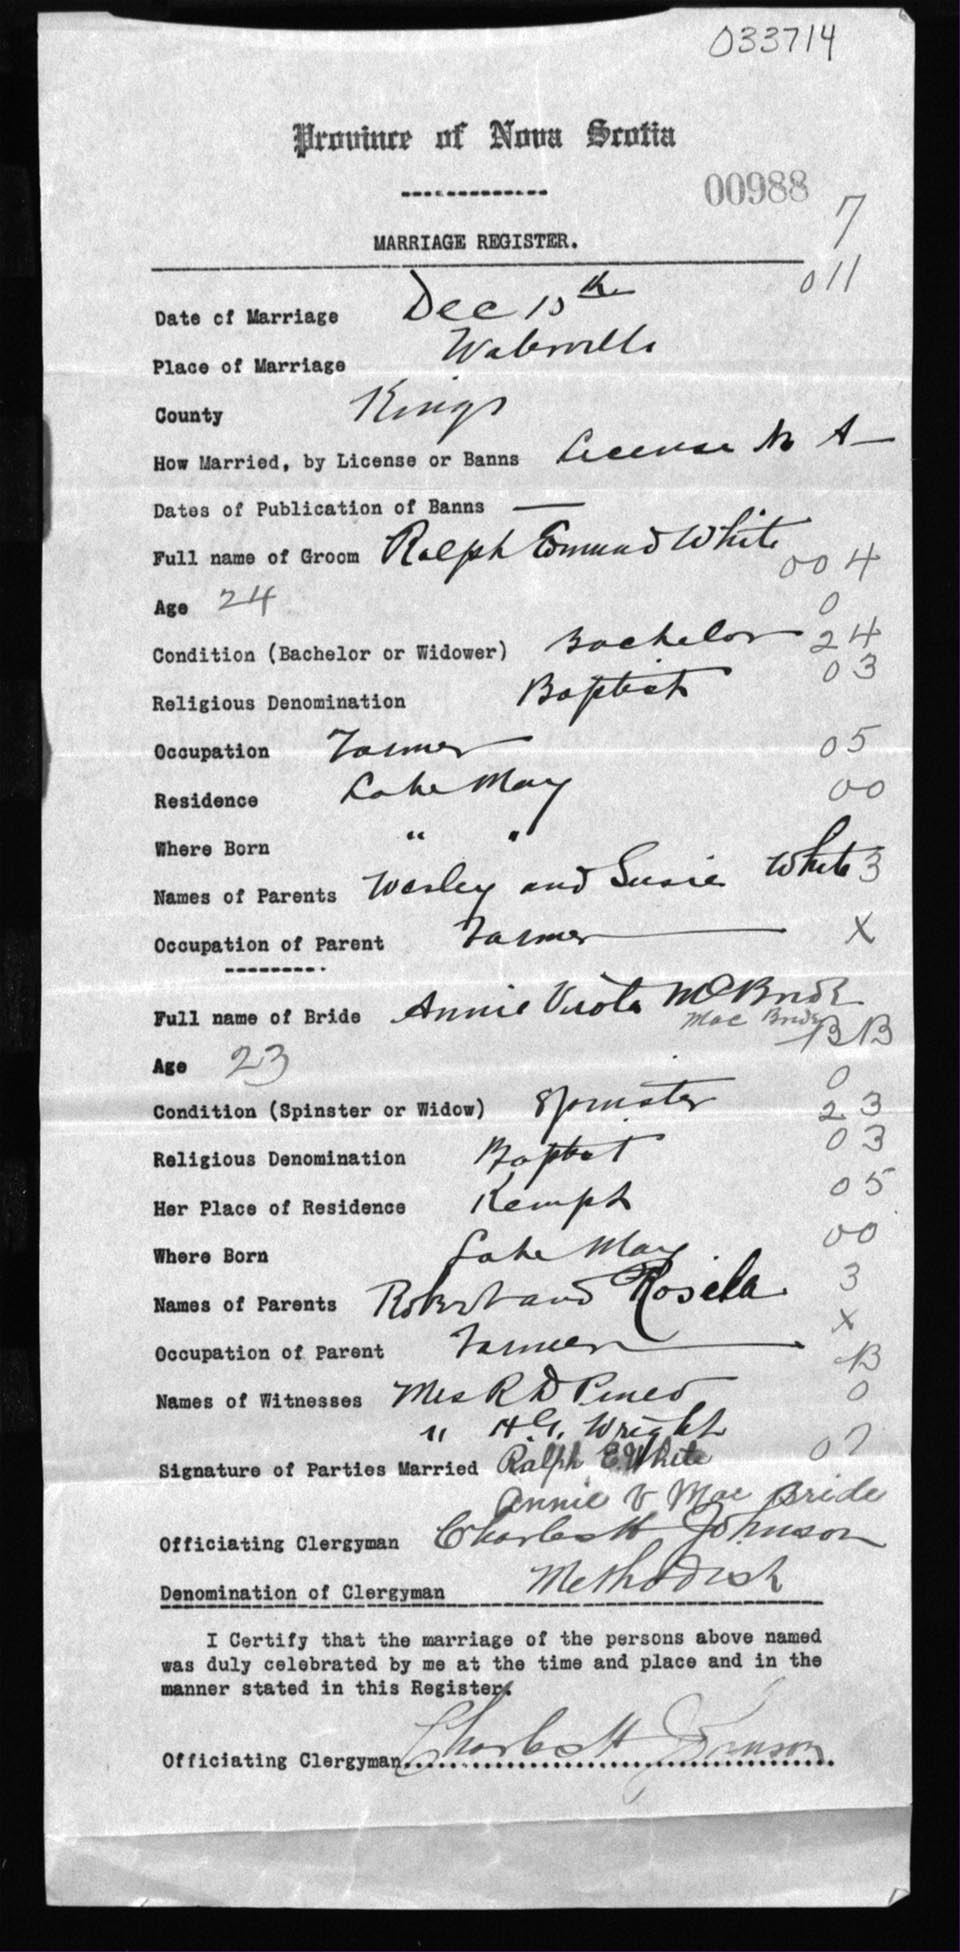 033714
Province of Nova Scotia
00988
7
MARRIAGE REGISTER.
011
Date of Marriage Dec 15th
Place of Marriage Waterville
County Kings
How Married, by License or Banns License No A—
Dates of Publication of Banns —
Full name of Groom Ralph Edmund White
004
Age 24 0
Condition (Bachelor or Widower) Bachelor 24
Religious Denomination Baptist 03
Occupation Farmer 05
Residence Lake May 00
Where Born " "
Names of Parents Wesley and Susie White 3
Occupation of Parent Farmer X
Full name of Bride Annie Viola McBride
Mac Bride BB
Age 23 0
Condition (Spinster or Widow) Spinster 23
Religious Denomination Baptist 03
Her Place of Residence Kempt 05
Where Born Lake May 00
Names of Parents Robert and Rosella 3
Occupation of Parent Farmer X
B
Names of Witnesses Mrs R D Pineo 0
" H.G. Wright
Signature of Parties Married Ralph E. White 07
Annie V Mac Bride
Officiating Clergyman Charles H Johnson
Denomination of Clergyman Methodist
I Certify that the marriage of the persons above named
was duly celebrated by me at the time and place and in the
manner stated in this Register.
Officiating Clergyman Charles H Johnson